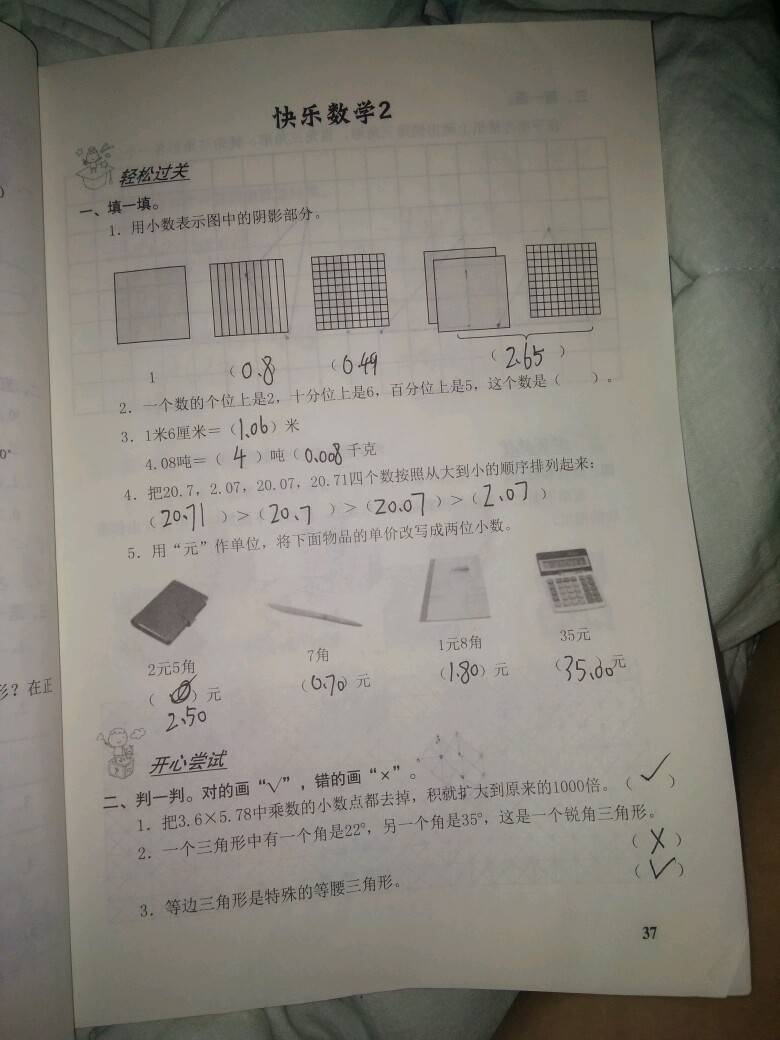 快乐数学2
轻松过关
一、填一填。
1. 用小数表示图中的阴影部分。
1 (0.8) (0.49) (2.65)
2. 一个数的个位上是2，十分位上是6，百分位上是5，这个数是（ ）。
3. 1米6厘米＝（1.06）米
4.08吨＝（4）吨（0.008）千克
4. 把20.7，2.07，20.07，20.71四个数按照从大到小的顺序排列起来：
（20.71）＞（20.7）＞（20.07）＞（2.07）
5. 用“元”作单位，将下面物品的单价改写成两位小数。
2元5角 7角 1元8角 35元
（ ）元 （0.70）元 （1.80）元 （35.00）元
2.50
开心尝试
二、判一判。对的画“√”，错的画“×”。
1. 把3.6×5.78中乘数的小数点都去掉，积就扩大到原来的1000倍。（√）
2. 一个三角形中有一个角是22°，另一个角是35°，这是一个锐角三角形。
（×）
3. 等边三角形是特殊的等腰三角形。（√）
37
形？在正